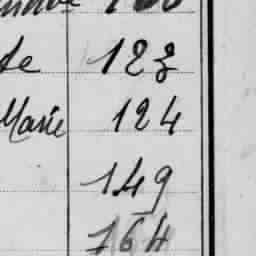 te 123
Marie 124
149
164